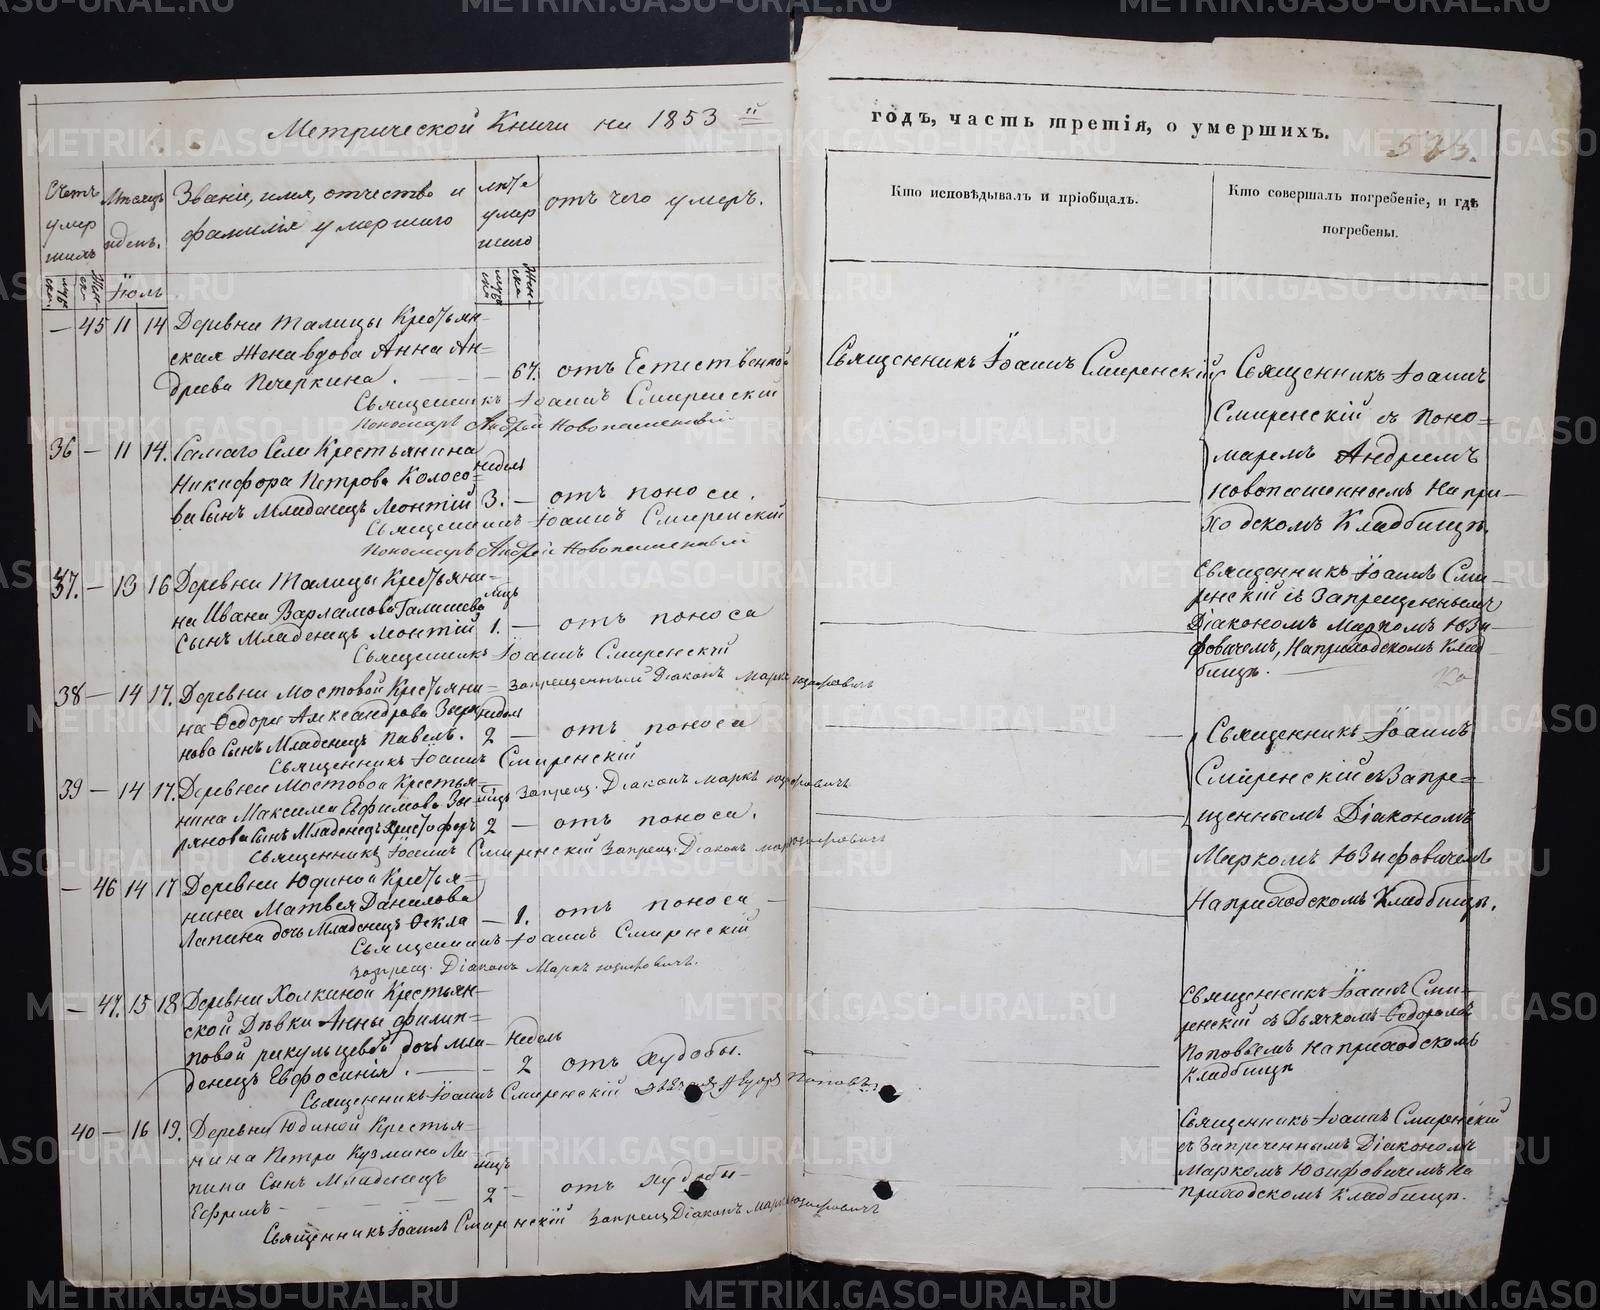 Метрической Книги на 1853й
годъ, часть третія, о умершихъ.
Счетъ умер шихъ
Мѣсяцъ и день.
Званіе, имя, отчество и
фамилія умершаго
лѣта умер шаго
отъ чего умеръ.
Кто исповѣдывалъ и пріобщалъ.
Кто совершалъ погребеніе, и гдѣ
погребены.
Іюль
— 45 11 14 Деревни Талицы Крестьян-
ская Жена вдова Анна Ан=
дреева Печеркина. — 67. отъ Естественной
Священникъ Іоаннъ Смиренскій
Священникъ Іоаннъ Смиренскій
Пономарь Андрей Новопашенный
Священникъ Іоаннъ
Смиренскій съ поно=
маремъ Андреемъ
Новопашеннымъ На при-
ходскомъ Кладбищѣ.
36 — 11 14. Самаго Села Крестьянина
Никифора Петрова Колосо=
ва Сынъ Младенецъ Леонтій недель 3. — отъ поноса.
Священникъ Іоаннъ Смиренскій
Пономарь Андрей Новопашенный
37. — 13 16 Деревни Талицы Крестьяни-
на Ивана Варламова Галишева
Сынъ Младенецъ Леонтій мѣц 1. — отъ поноса
Священникъ Іоаннъ Смиренскій
Запрещенный Діаконъ Маркъ Юзифовичъ
Священникъ Іоаннъ Сми-
ренскій съ Запрещеннымъ
Діакономъ Маркомъ Юзи-
фовичемъ, На приходскомъ Клад-
бищѣ.
38 — 14 17. Деревни Мостовой Крестьяни-
на Ѳедора Александрова Зыря
нова Сынъ Младенецъ Павелъ. недель 2 — отъ поноса
Священникъ Іоаннъ Смиренскій
Запрещ. Діаконъ Маркъ Юзифовичъ
Священникъ Іоаннъ
Смиренскій съ Запре=
щеннымъ Діакономъ
Маркомъ Юзифовичемъ
На приходскомъ Кладбищѣ.
39 — 14 17. Деревни Мостовой Крестья-
нина Максима Евфимова Зы-
рянова Сынъ Младенецъ Христофоръ мѣц 2 — отъ поноса.
Священникъ Іоаннъ Смиренскій Запрещ. Діаконъ Маркъ Юзифовичъ
— 46 14 17 Деревни Юдиной Крестья=
нина Матвея Данилова
Лапина дочь Младенецъ Ѳекла — 1. отъ поноса
Священникъ Іоаннъ Смиренскій
Запрещ. Діаконъ Маркъ Юзифовичъ.
— 47. 15 18 Деревни Холкиной Крестьян-
ской Дѣвки Анны Филип=
повой Рикульцевой дочь мла-
денецъ Евфросинія. — недель 2 отъ худобы.
Священникъ Іоаннъ Смиренскій Дьячекъ Ѳедоръ Поповъ
Священникъ Іоаннъ Сми-
ренскій съ Дьячкомъ Ѳедоромъ
Поповымъ На приходскомъ
Кладбищѣ
40 — 16 19. Деревни Юдиной Крестья-
нина Петра Кузмина Ла-
пина Сынъ Младенецъ
Ефремъ мѣц 2 — отъ худобы
Священникъ Іоаннъ Смиренскій Запрещ. Діаконъ Маркъ Юзифовичъ
Священникъ Іоаннъ Смиренскій
съ Запреченнымъ Діакономъ
Маркомъ Юзифовичемъ На
приходскомъ Кладбищѣ.
METRIKI.GASO-URAL.RU